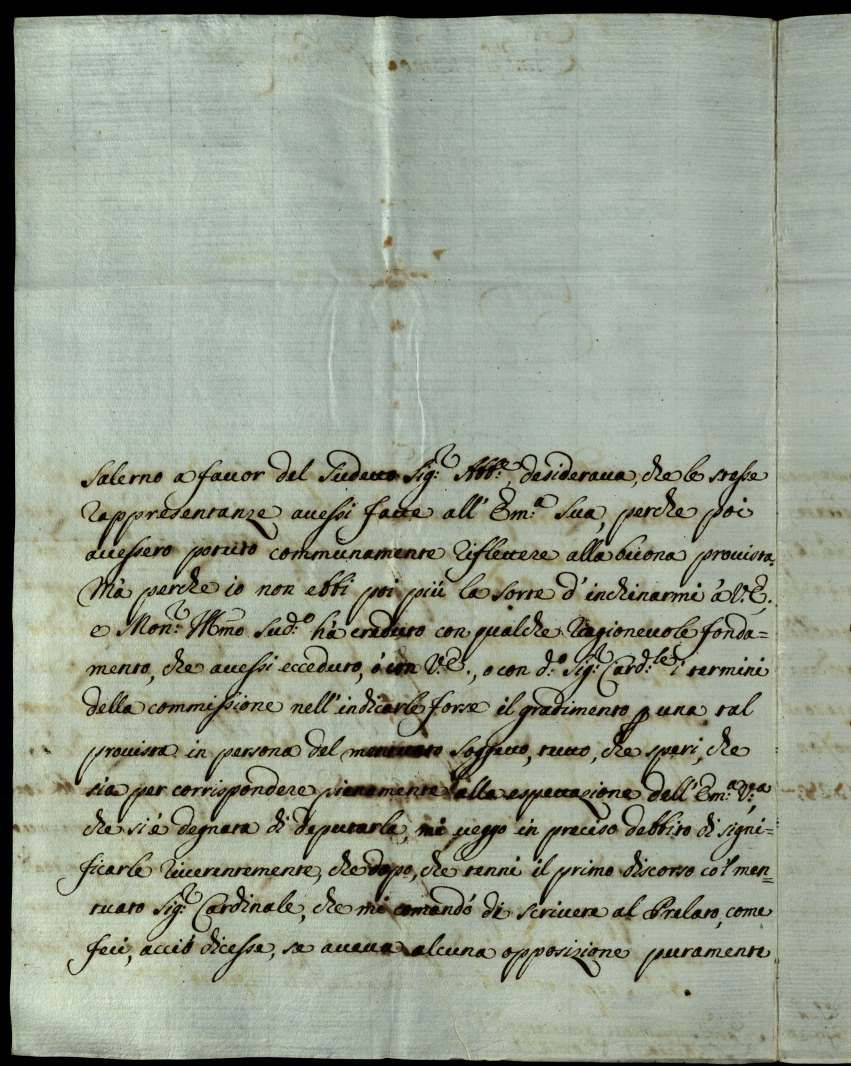 Salerno a favor del Sudetto Sig:r Abb:e, desiderava, che le stesse
rappresentanze avessi fatte all' Em:a Sua, perche poi
avessero potuto communamente riflettere alla buona provista.
Mà perche io non ebbi poi più la sorte d'inchinarmi à V:E:,
e Mon:r Ill:mo Sud:o hà creduto con qualche ragionevole fonda=
mento, che avessi ecceduto, ò con V:E:, o con d:o Sig:r Card:le i termini
della commissione nell'indicarle forse il gradimento p una tal
provista in persona del mentuato Soggetto, tutto, che speri, che
sia per corrispondere pienamente alla espettazione dell'Em:a V:a
che si é degnata di deputarlo, mi veggo in preciso debbito di signi=
ficarle riverentemente, che dopo, che tenni il primo discorso col men=
tuato Sig:r Cardinale, che mi comandó di scrivere al Prelato, come
feci, acció dicesse, se aveva alcuna opposizione puramente